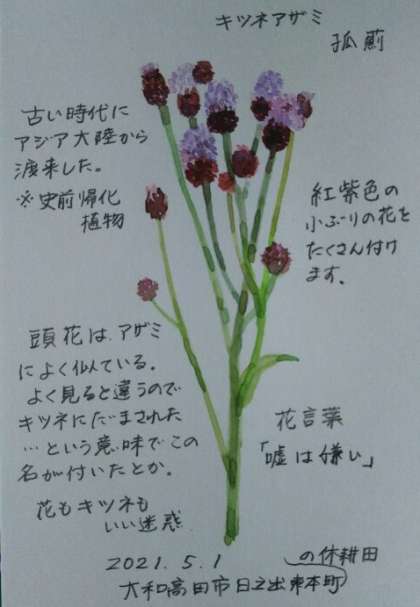 キツネアザミ
狐薊
古い時代に
アジア大陸から
渡来した。
※史前帰化
植物
紅紫色の
小ぶりの花を
たくさん付け
ます。
頭花は、アザミ
によく似ている。
よく見ると違うので
キツネにだまされた
…という意味でこの
名が付いたとか。
花もキツネも
いい迷惑
花言葉
「嘘は嫌い」
2021.5.1
大和高田市日之出東本町
の休耕田